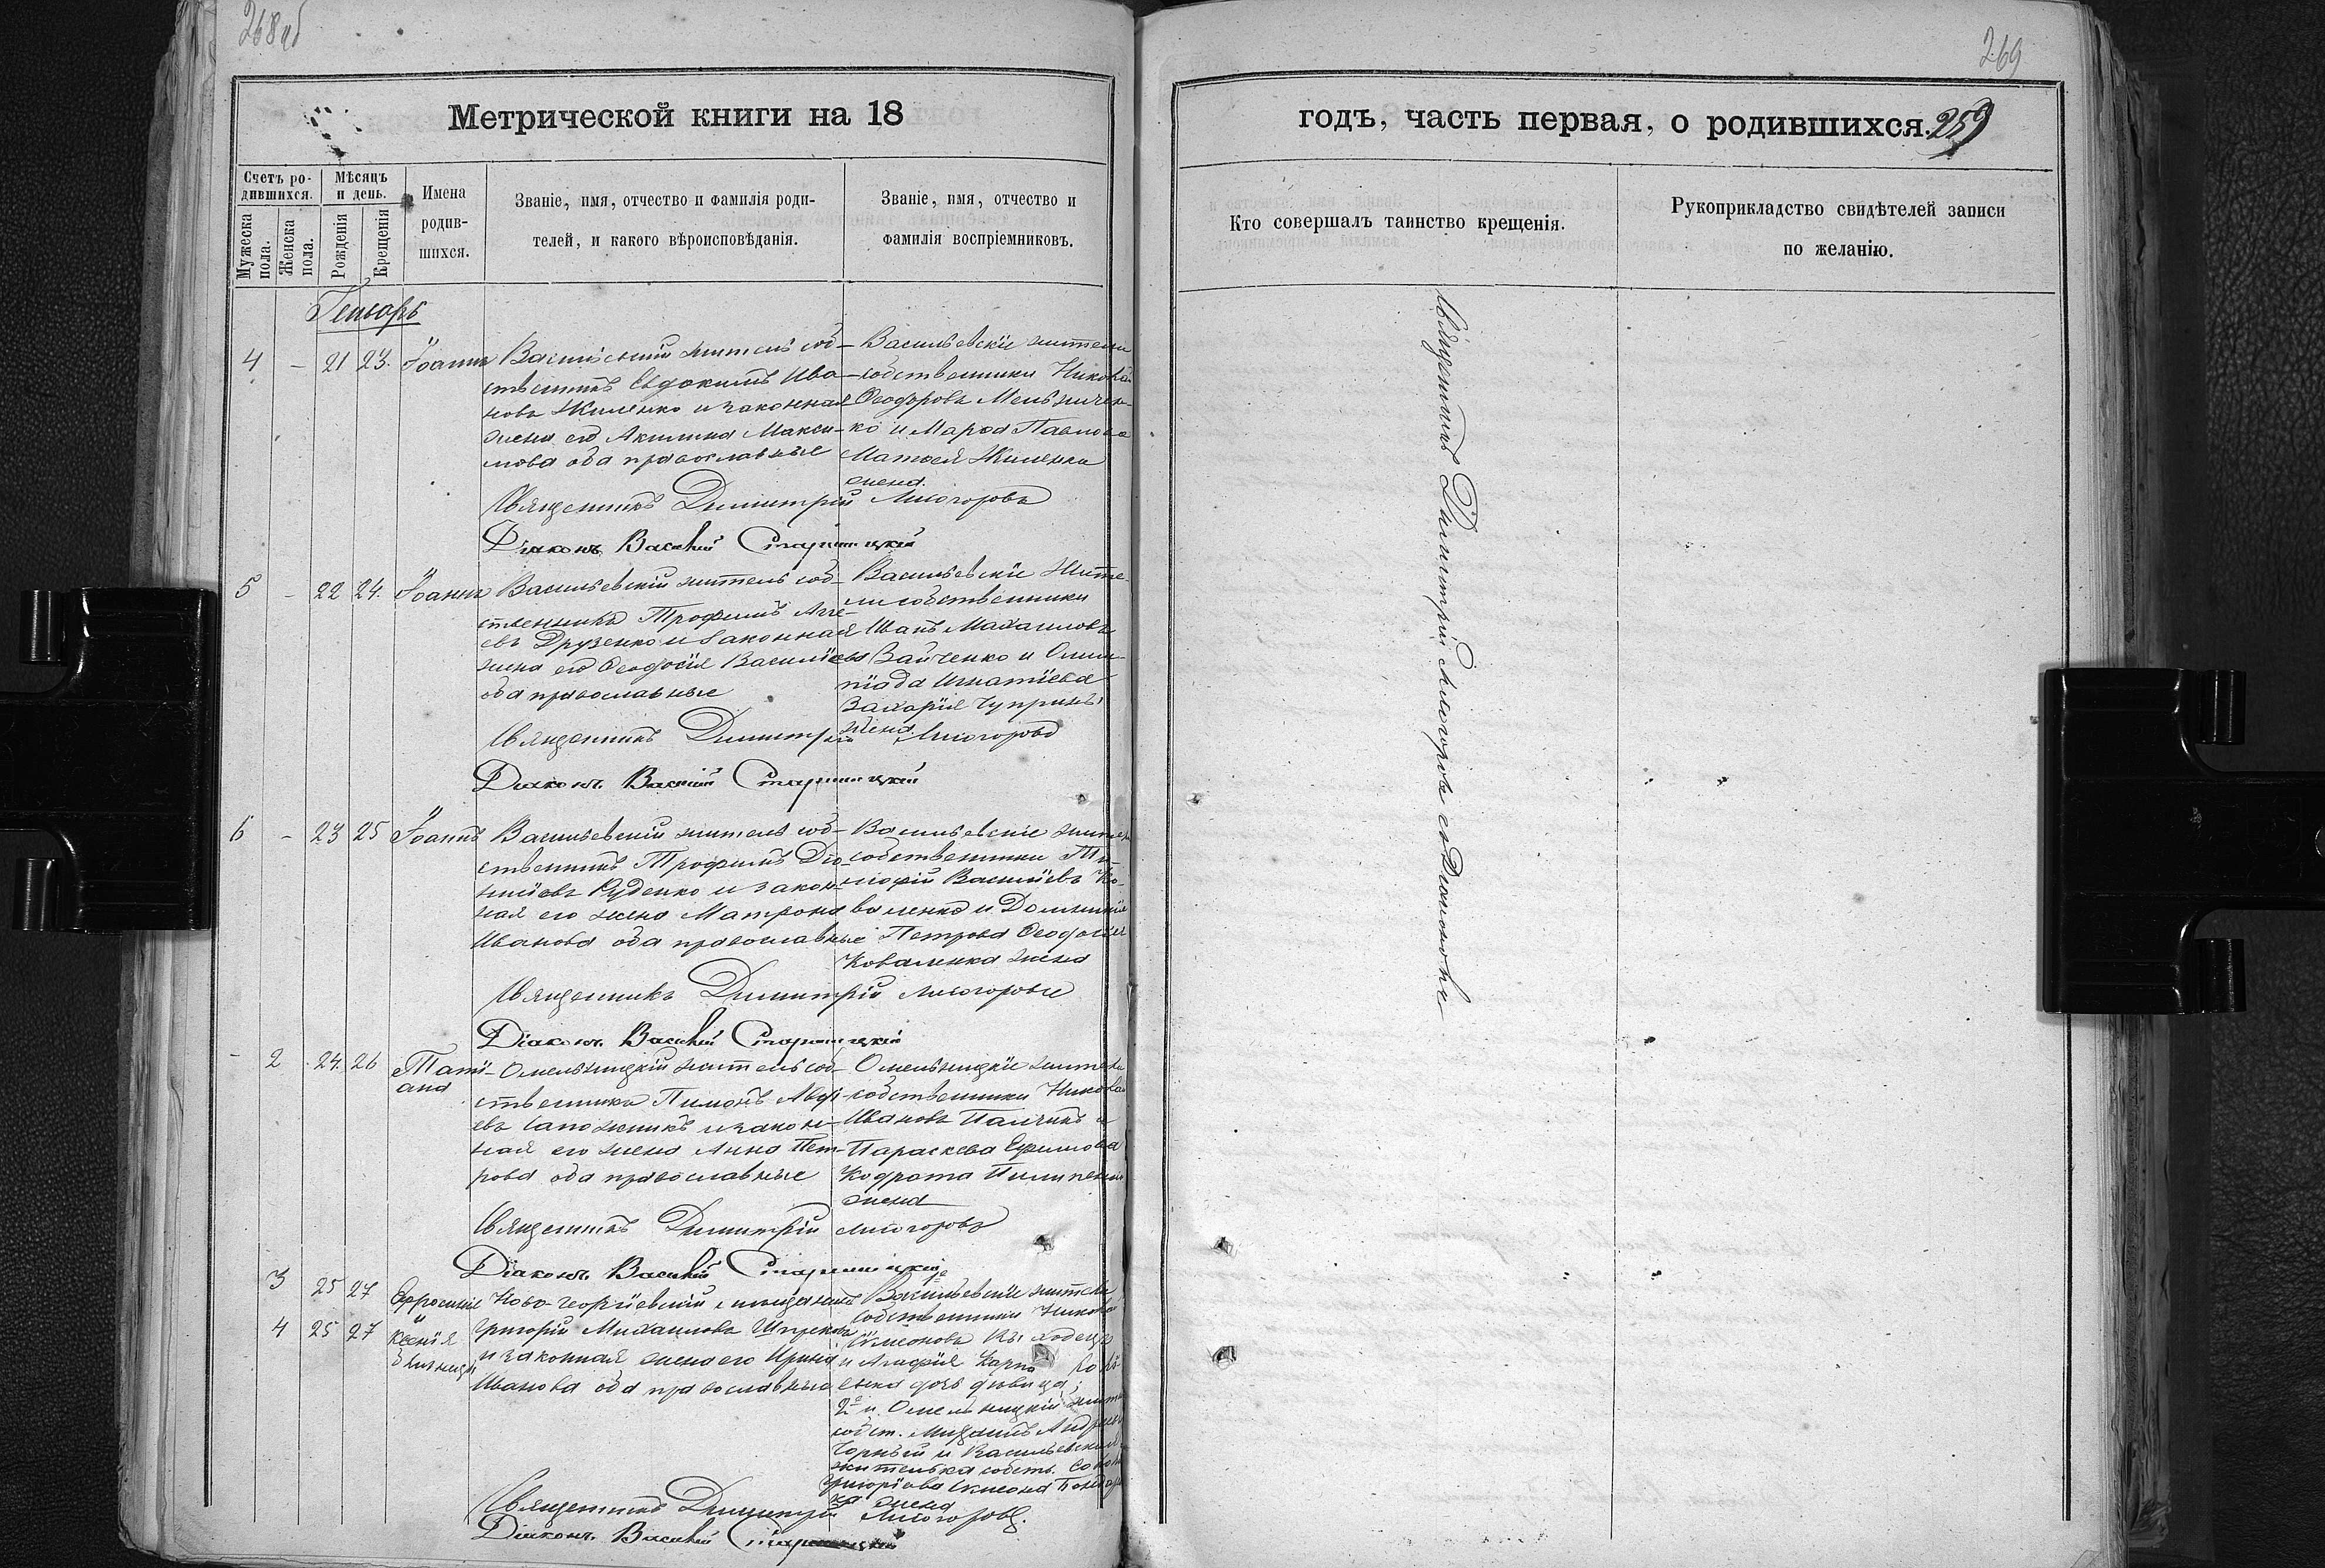 268 об
Метрической книги на 18
Счетъ ро-
дившихся.
Мужеска пола.
Женска пола.
Мѣсяцъ
и день.
Рожденія
Крещенія
Имена
родив-
шихся.
Званіе, имя, отчество и фамилія роди-
телей, и какого вѣроисповѣданія.
Званіе, имя, отчество и
фамилія воспріемниковъ.
Генварь
4 – 21 23. Іоаннъ
Васильевскій житель соб-
ственникъ Евдокимъ Ива-
новъ Жиленко и законная
жена его Акилина Макси-
мова оба православные
Васильевскіе жители
собственники Николай
Ѳеодоровъ Мельничен-
ко и Марѳа Павлова
Матѳея Жиленка
жена.
Священникъ Димитрій Лисогоровъ
Діаконъ Василій Старицкій
5 – 22 24. Іоаннъ
Васильевскій житель соб-
ственникъ Трофимъ Агѣ-
евъ Друзенко и законная
жена его Ѳеодосія Василіева
оба православные
Васильевскіе жите
ли собственники
Иванъ Михаиловъ
Зайченко и Олим-
піада Игнатіева
Захарія Чуприны
жена.
Священникъ Димитрій Лисогоровъ
Діаконъ Василій Старицкій
6 – 23 25 Іоаннъ
Васильевскій житель соб-
ственникъ Трофимъ Діо-
нисіевъ Руденко и закон-
ная его жена Матрона
Иванова оба православные
Васильевскіе жители
собственники Ти-
моѳій Василіевъ Ко-
валенко и Домникія
Петрова Ѳеодосія
Коваленка жена
Священникъ Димитрій Лисогоровъ
Діаконъ Василій Старицкій
– 2 24. 26 Таті-
ана
Омельницкій житель соб-
ственникъ Пимонъ
евъ Сапожникъ и закон-
ная его жена Анна Пет-
рова оба православные
Омельницкіе жители
собственники Николай
Ивановъ и
Параскева Ефимова
Кодрата
жена
Священникъ Димитрій Лисогоровъ
Діаконъ Василій Старицкій
3 25 27 Ефросинія
и
4 25 27 Ксенія
близнецы
Ново-Георгіевскій мѣщанинъ
Григорій Михаиловъ
и законная жена его Ирина
Иванова оба православные
1е Васильевскіе жители
собственники Николай
Симеоновъ
и Агафія
дочь дѣвица;
2е и Омельницкій житель
собст. Андреевъ
Чорный и Васильевская
жителька собств.
Григоріева Симеона
жена
Священникъ Димитрій Лисогоровъ.
Діаконъ Василій Старицкій
269
годъ, часть первая, о родившихся.
259
Кто совершалъ таинство крещенія.
Рукоприкладство свидѣтелей записи
по желанію.
Священникъ Димитрій Лисогоровъ съ Діакономъ